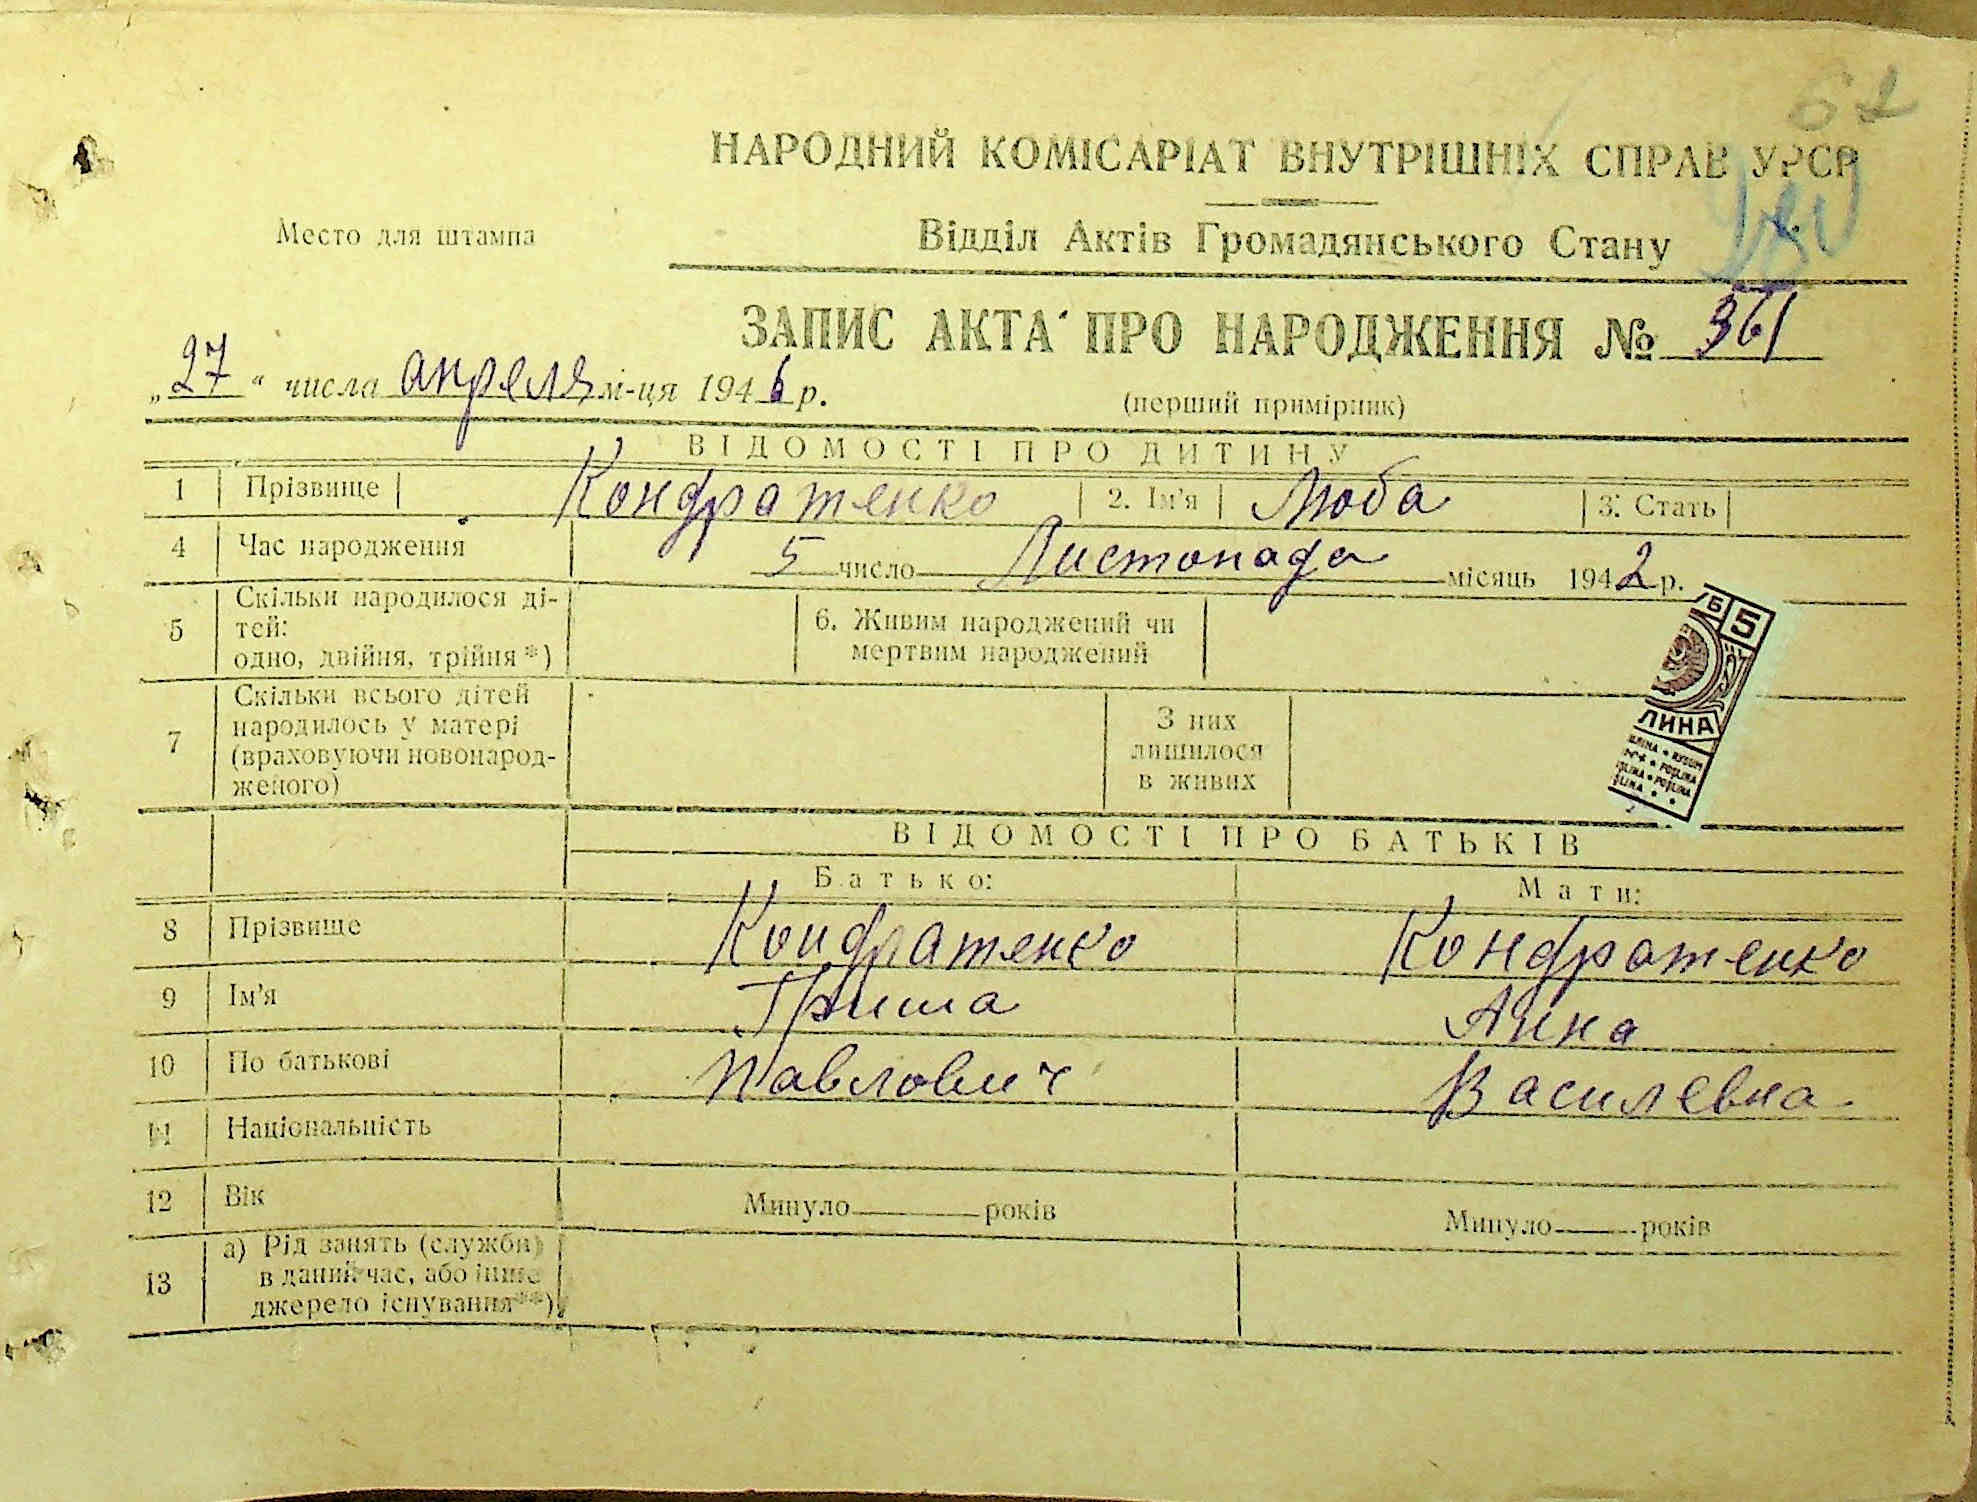 62
НАРОДНИЙ КОМІСАРІАТ ВНУТРІШНІХ СПРАВ УРСР
Место для штампа
Відділ Актів Громадянського Стану
ЗАПИС АКТА ПРО НАРОДЖЕННЯ № 361
„27" числа апреля мі-ця 1946 р.
(перший примірник)
ВІДОМОСТІ ПРО ДИТИНУ
1 Прізвище Кондратенко 2. Ім'я Люба 3. Стать
4 Час народження 5 число Листопада місяць 1942 р.
5 Скільки народилося ді-
тей:
одно, двійня, трійня*)
6. Живим народжений чи
мертвим народжений
7 Скільки всього дітей
народилось у матері
(враховуючи новонарод-
женого)
З них
лишилося
в живих
5
ЛИНА
ВІДОМОСТІ ПРО БАТЬКІВ
Батько: Мати:
8 Прізвище Кондратенко Кондратенко
9 Ім'я Гриша Анна
10 По батькові Павлович Василевна
11 Національність
12 Вік Минуло років Минуло років
13 а) Рід занять (служби)
в даний час, або інше
джерело існування**)